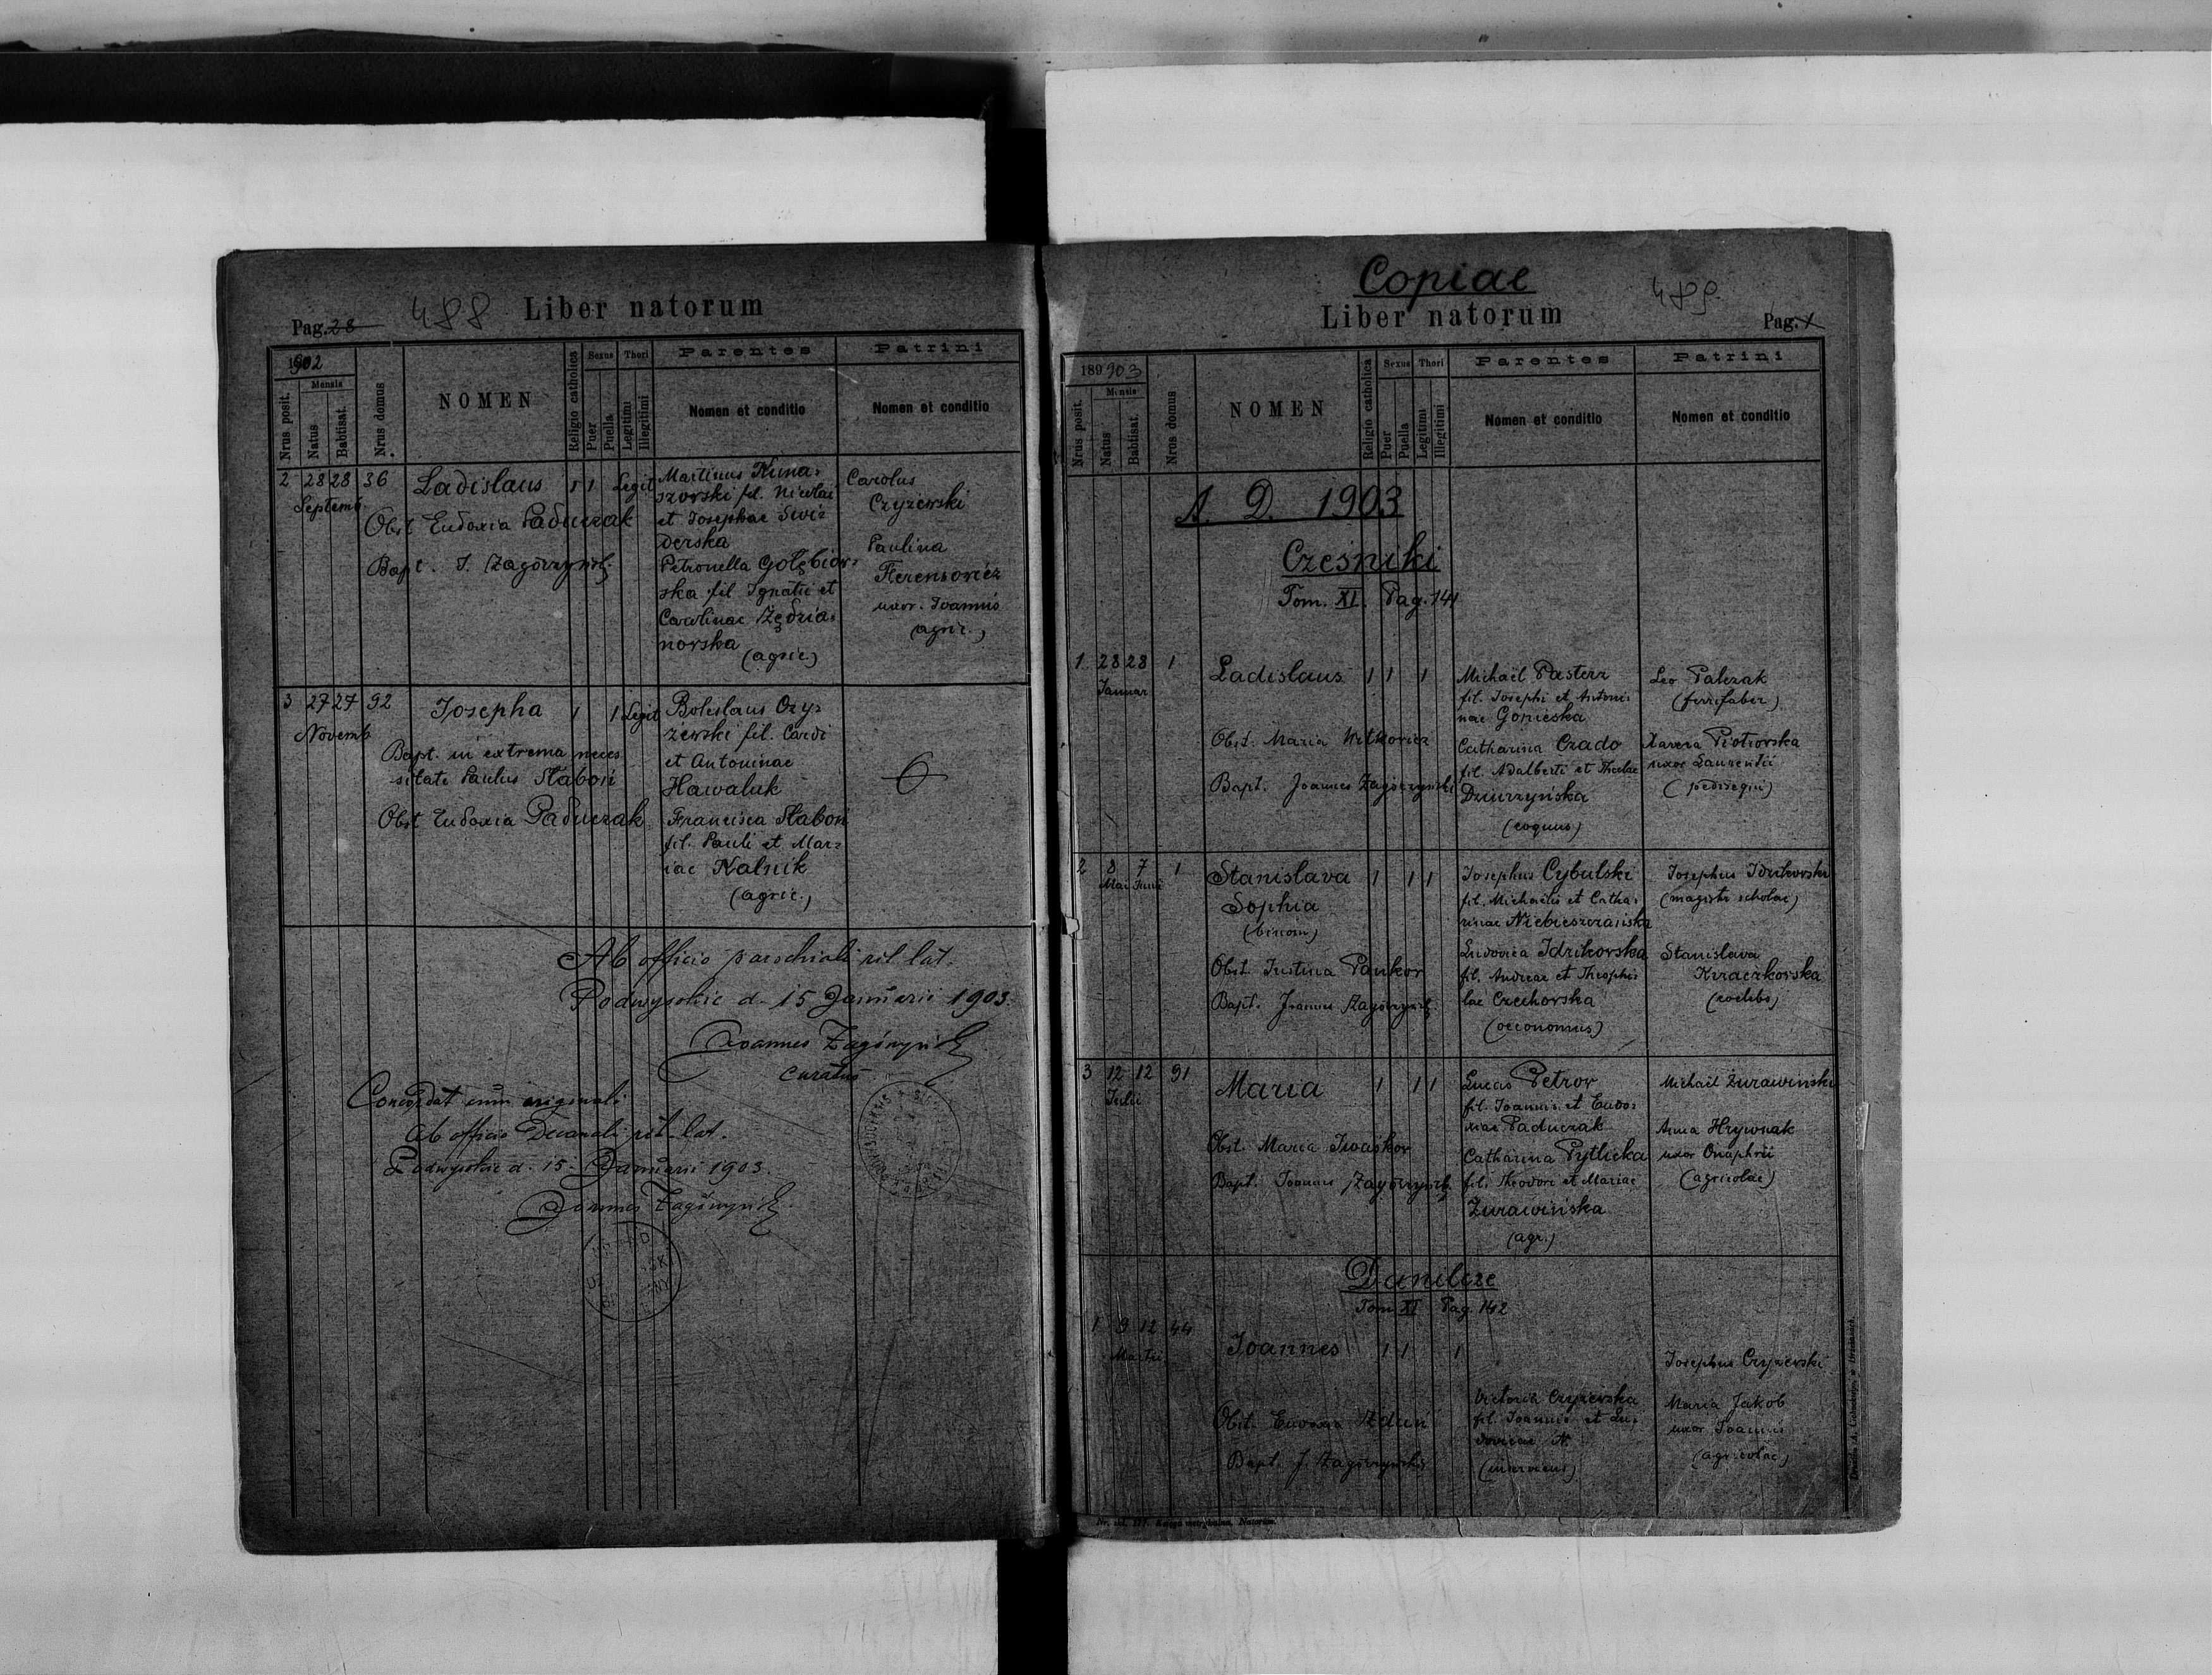 Pag. 28
488
Liber natorum
1902
Nrus posit.
Mensis
Natus
Babtisat.
Nrus domus
NOMEN
Religio catholica
Sexus
Puer
Puella
Thori
Legitimi
Illegitimi
Parentes
Nomen et conditio
Patrini
Nomen et conditio
2 28 28 36
Septemb
Ladislaus 1 1 Legit
Obst Eudoxia Paduczak
Bapt. J. Zagórzyński
Martinus Kuna-
szowski fil. Nicolai
et Josephae Świ-
derska
Petronella Gołębiow-
ska fil Ignatii et
Carolinae Zędzia-
nowska
(agric.)
Carolus
Czyżewski
Paulina
Ferensowicz
uxor. Joannis
(agric.)
3 27 27 92
Novemb
Josepha 1 1 Legit
Bapt. in extrema neces
sitate Paulus Słaboń
Obst Eudoxia Paduczak
Boleslaus Czy-
żewski fil. Caroli
et Antoninae
Hawaluk
Francisca Słaboń
fil. Pauli et Mar-
iae Kalnik
(agric.)
Ab officio parochiali rit. lat.
Podwysokie d. 15 Januarii 1903.
Joannes Zagórzyński
curatus
Concordat cum originali
Ab officio Decanali rit. lat.
Podwysokie d. 15. Januarii 1903.
Joannes Zagórzyński
Copiae
489
Liber natorum
Pag. 1
189 903
Nrus posit.
Mensis
Natus
Babtisat.
Nrus domus
NOMEN
Religio catholica
Sexus
Puer
Puella
Thori
Legitimi
Illegitimi
Parentes
Nomen et conditio
Patrini
Nomen et conditio
A. D. 1903
Cześniki
Tom. XI. Pag. 141
1 28 28 1
Januar
Ladislaus 1 1 1
Obst. Maria Witkowicz
Bapt. Joannes Zagórzyński
Michaël Pasterz
fil. Josephi et Antoni-
nae Gonieska
Catharina Czado
fil. Adalberti et Theclae
Dziurzyńska
(coquus)
Leo Palczak
(ferrifaber)
Xavera Piotrowska
uxor Laurentii
(pedisequi)
2 8 7 1
Mai Junii
Stanislava 1 1 1
Sophia
(binom)
Obst. Justina Pankow
Bapt. Joannes Zagórzyński
Josephus Cybulski
fil. Michaelis et Catha-
rinae Niebieszczańska
Ludovica Idzikowska
fil. Andreae et Theophi-
lae Czechowska
(oeconomus)
Josephus Idzikowski
(magistr scholae)
Stanislava
Kraczkowska
(coelebs)
3 12 12 91
Julii
Maria 1 1 1
Obst. Maria Iwaśkow
Bapt. Joannes Zagórzyński
Lucas Petrow
fil. Joannis et Eudo-
xiae Paduczak
Catharina Pytlicka
fil. Theodori et Mariae
Żurawińska
(agr.)
Michaël Żurawinski
Anna Hrywnak
uxor Onuphrii
(agricolae)
Danilcze
Tom XI Pag. 142
1 9 12 44
Martii
Joannes 1 1 1
Obst. Eudoxia Zduń
Bapt. J. Zagórzyński
Victoria Czyżewska
fil. Joannis et Lu-
dovicae N.
(inserviens)
Josephus Czyżewski
Maria Jakob
uxor Joannis
(agricolae)